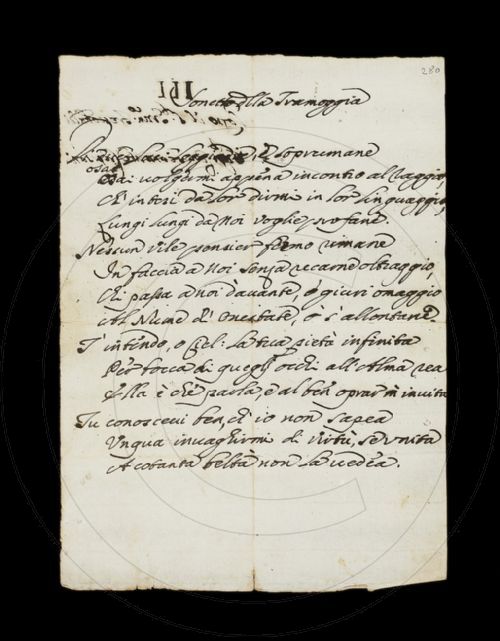 280
Sonetto alla Tramoggia
e soprumane
osai volgermi appena incontro al raggio,
Ch' intesi da lor dirmi in lor linguaggio,
Lungi lungi da Noi voglie profane.
Nessun vile pensier fermo rimane
In faccia a Noi senza recarne oltraggio,
Chi passa a noi davante, o giuri omaggio
Al Nume d' onestate, o s' allontane
T' intendo, o Ciel: la tua pietà infinita
Per bocca di quegl' occhi all' Alma rea
Ella è che parla, e al ben oprar m' invita
Tu conoscevi ben, ch' io non sapea
Unqua invaghirmi di virtù, se unita
A cotanta beltà non la vedea.